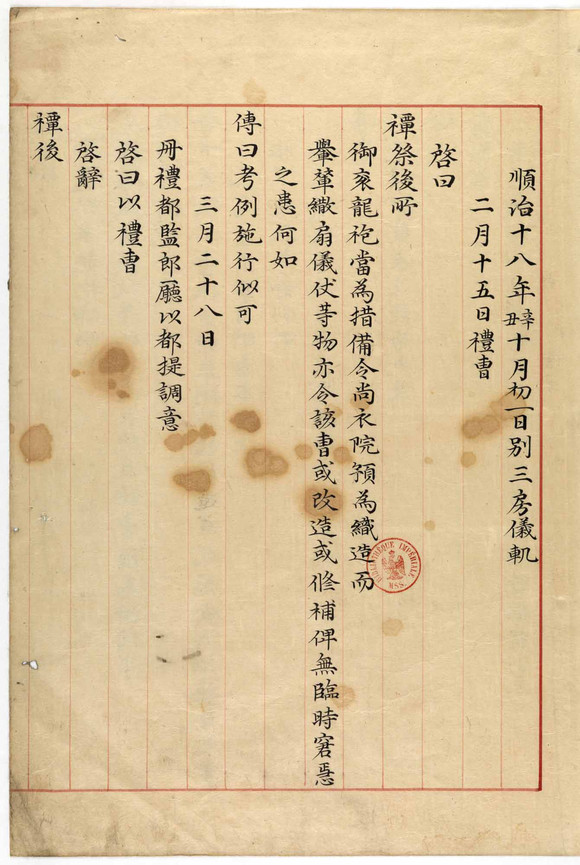 順治十八年辛丑十月初一日別三房儀軌
二月十五日禮曺
啓曰
禫祭後所
御衮龍袍當為措備令尚衣院預為織造而
轝輦繖扇儀仗等物亦令該曺或改造或修補俾無臨時窘
之患何如
傳曰考例施行似可
三月二十八日
冊禮都監郎廳以都提調意
啓曰以禮曺
啓辭
禫後
BIBLIOTHÈQUE IMPÉRIALE
MSS.